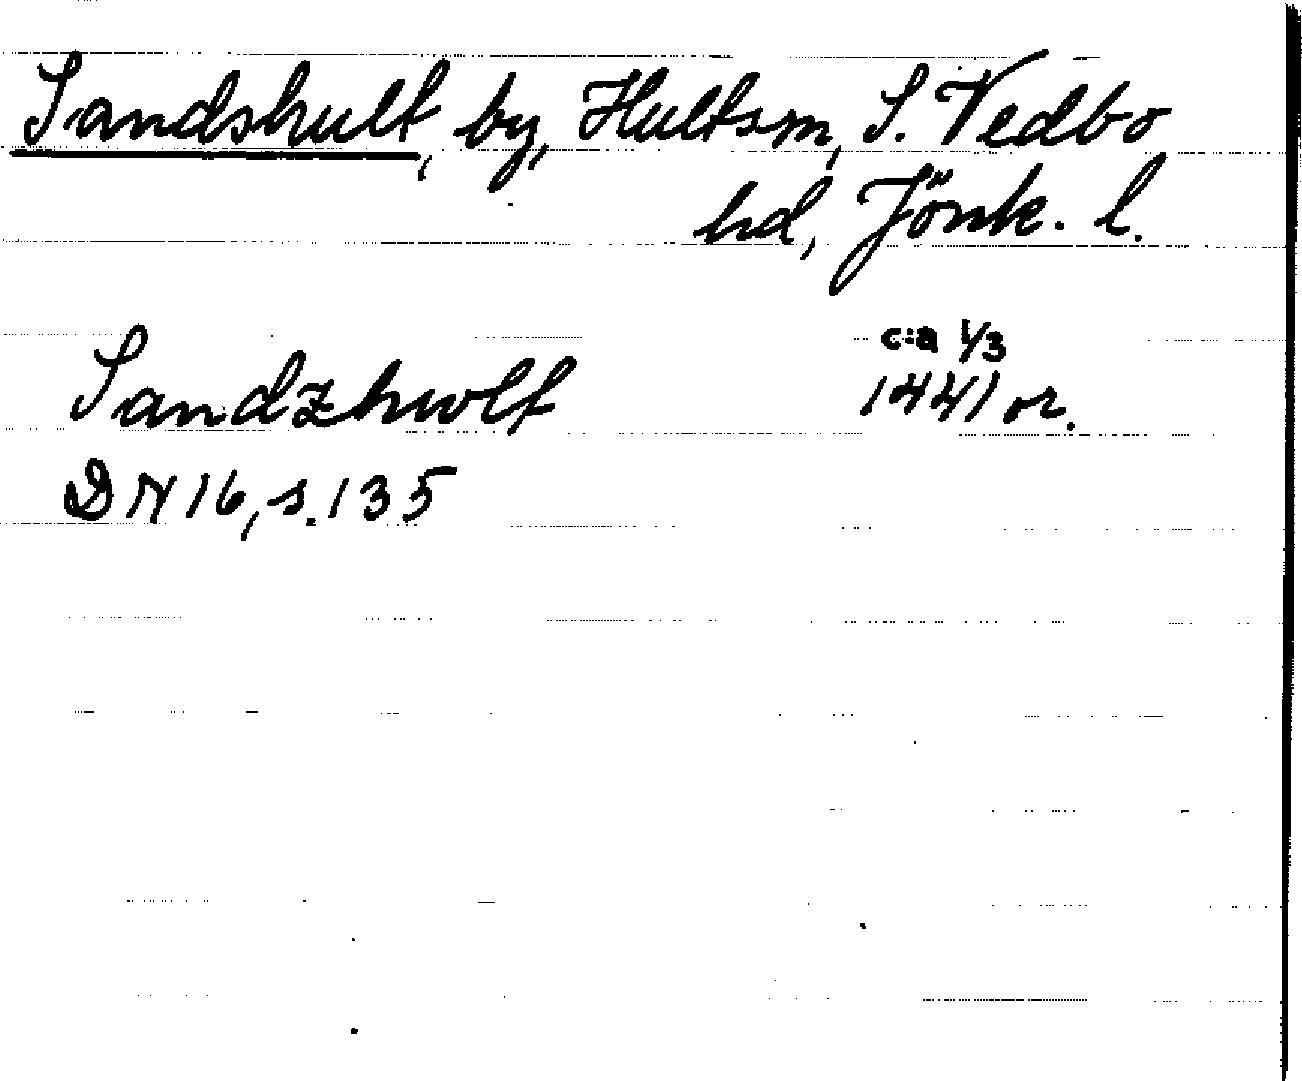 Sandshult, by, Hultsm, S. Vedbo
hd, Jönk. l.
c:a 1/3
Sandzhwlt 1441 or.
DN 16, s. 135